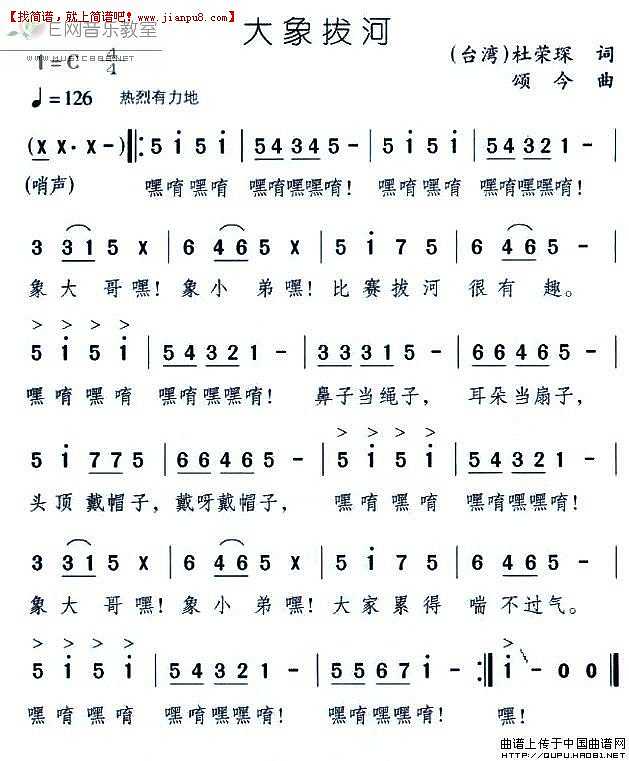 【找简谱，就上简谱吧！www.jianpu8.com】
E网音乐教室
大象拔河
1=C 4/4
(台湾)杜荣琛 词
颂今 曲
♩=126 热烈有力地
(X X· X -)‖: 5 i 5 i | 5 4 3 4 5 - | 5 i 5 i | 5 4 3 2 1 - |
(哨声) 嘿唷嘿唷 嘿唷嘿嘿唷! 嘿唷嘿唷 嘿唷嘿嘿唷!
3 3 1 5 X | 6 4 6 5 X | 5 i 7 5 | 6 4 6 5 - |
象大哥嘿! 象小弟嘿! 比赛拔河 很有趣。
> > > >
5 i 5 i | 5 4 3 2 1 - | 3 3 3 3 5 - | 6 6 4 6 5 - |
嘿唷嘿唷 嘿唷嘿嘿唷! 鼻子当绳子, 耳朵当扇子,
> > > >
5 i 7 7 5 | 6 6 4 6 5 - | 5 i 5 i | 5 4 3 2 1 - |
头顶戴帽子, 戴呀戴帽子, 嘿唷嘿唷 嘿唷嘿嘿唷!
3 3 1 5 X | 6 4 6 5 X | 5 i 7 5 | 6 4 6 5 - |
象大哥嘿! 象小弟嘿! 大家累得 喘不过气。
> > > > >
5 i 5 i | 5 4 3 2 1 - | 5 5 6 7 i - :‖ i - 0 0 ‖
嘿唷嘿唷 嘿唷嘿嘿唷! 嘿唷嘿嘿唷! 嘿!
曲谱上传于中国曲谱网
http://QUPU.HAO81.NET